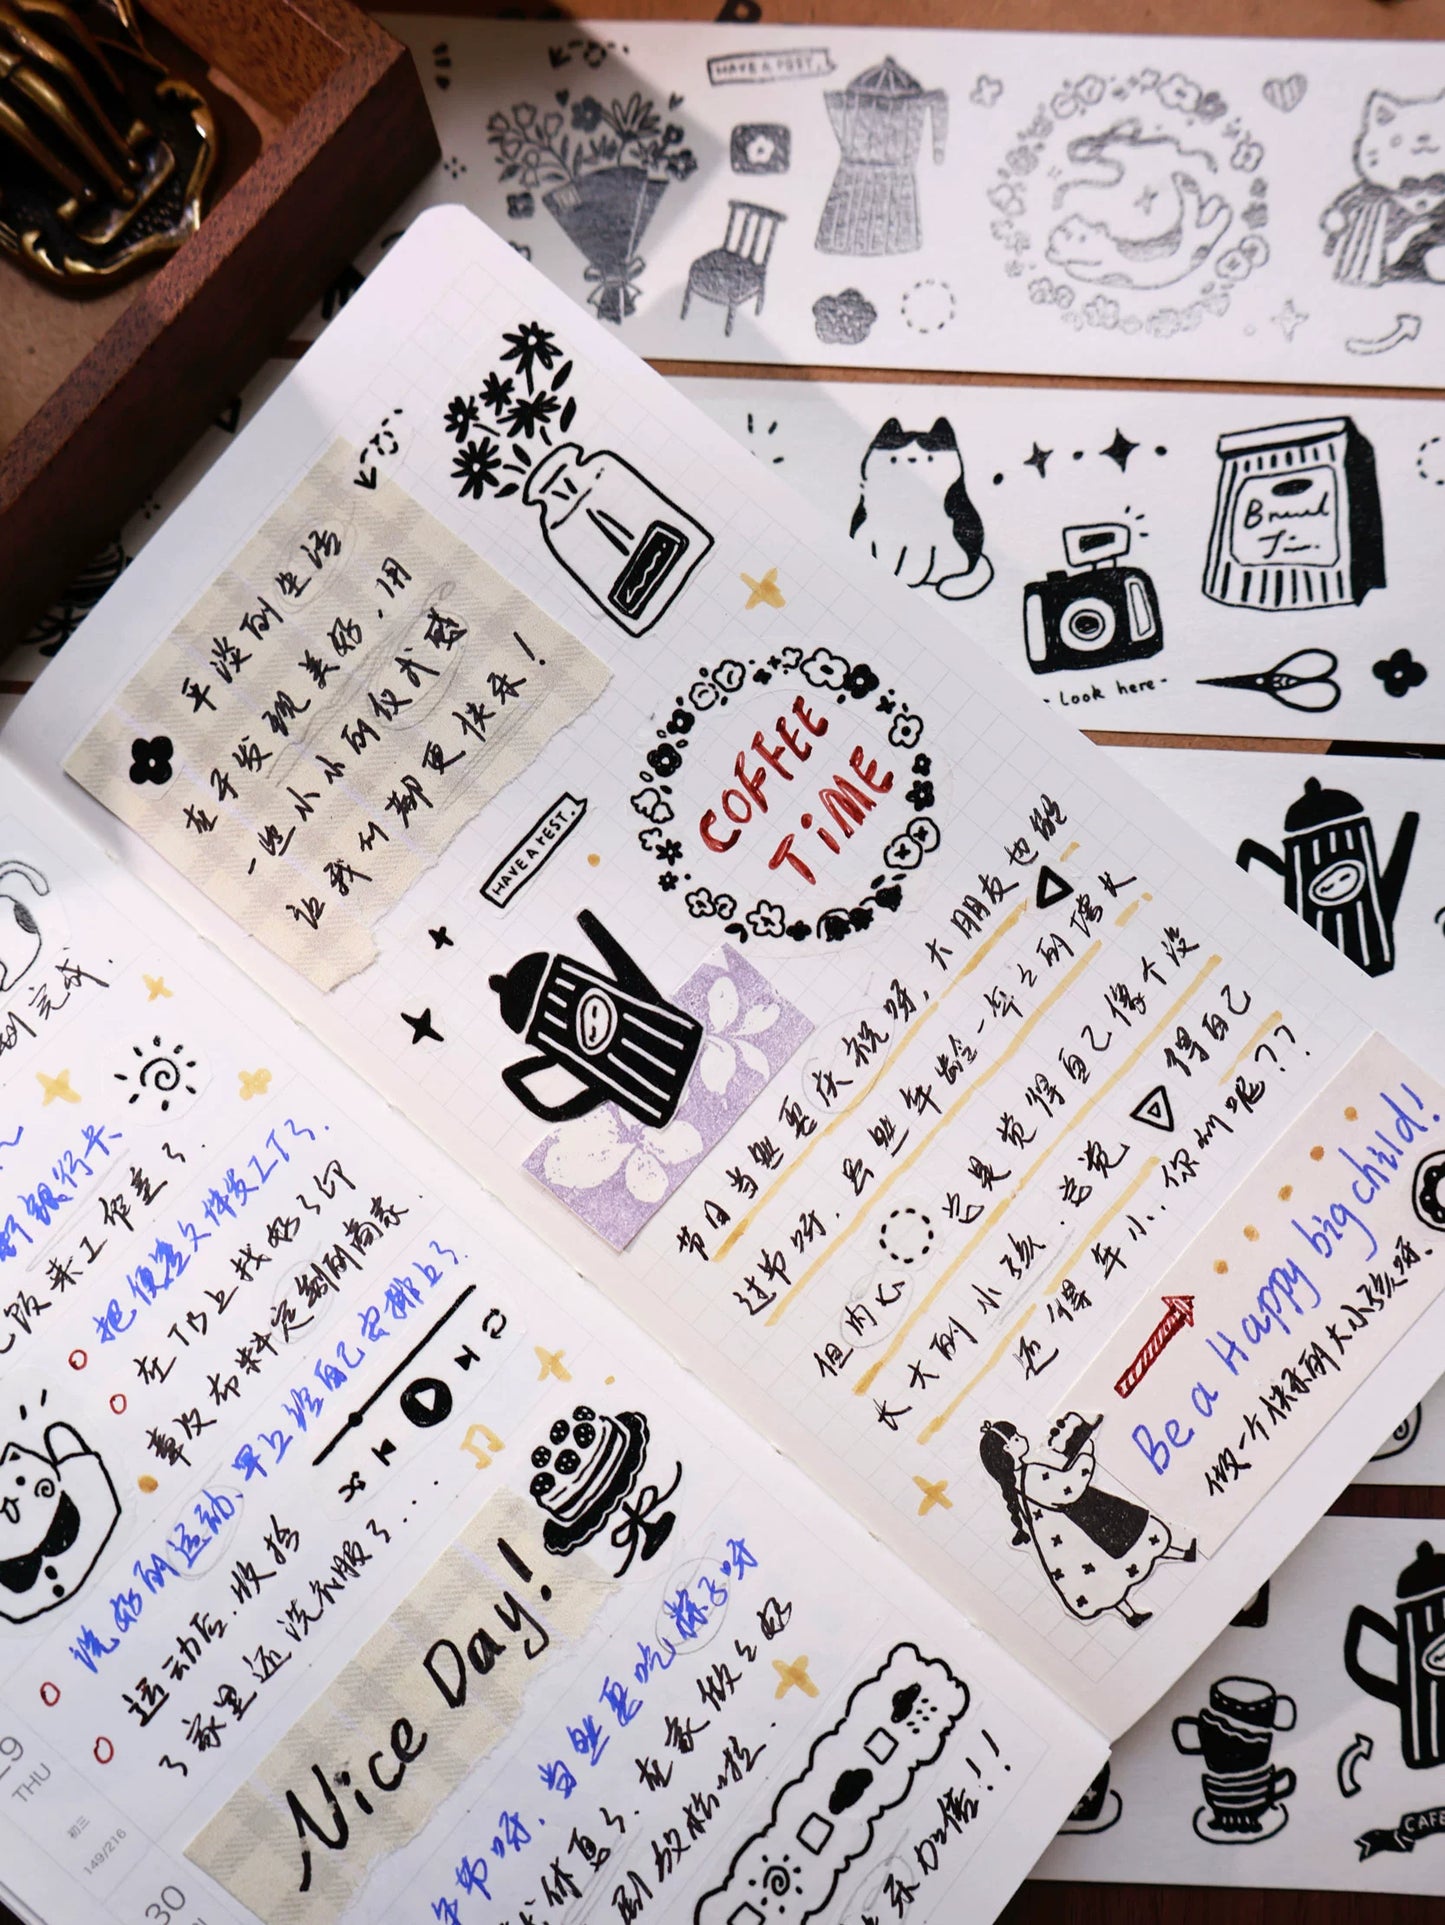 HAVE A REST.
Brunch
Tin.
- Look here -
平淡的生活
在于发现美好，用
一些小小的仪式感
让我们都更快乐！
COFFEE
TiME
HAVE A REST.
节日当然要庆祝呀，大朋友也能
过节呀，虽然年龄一年之的增大
但内心 总是觉得自己像个没
长大的小孩，总觉得自己
还得年小..你们呢??
Be a Happy big child!
做一个快乐的大小孩呀.
完成.
银行卡
饭来工作室了.
把便签文件发工厂了.
在TB上找好了印
章皮布料定制的商家.
早上给自己安排上了
洗好的运动、
运动后.收拾
了家里还洗衣服了...
9
THU
初三
149/216
30
Nice Day!
节呀，当然要吃粽子呀
休息了.在家做之
剧放松一整.
乐加倍!!
CAFE